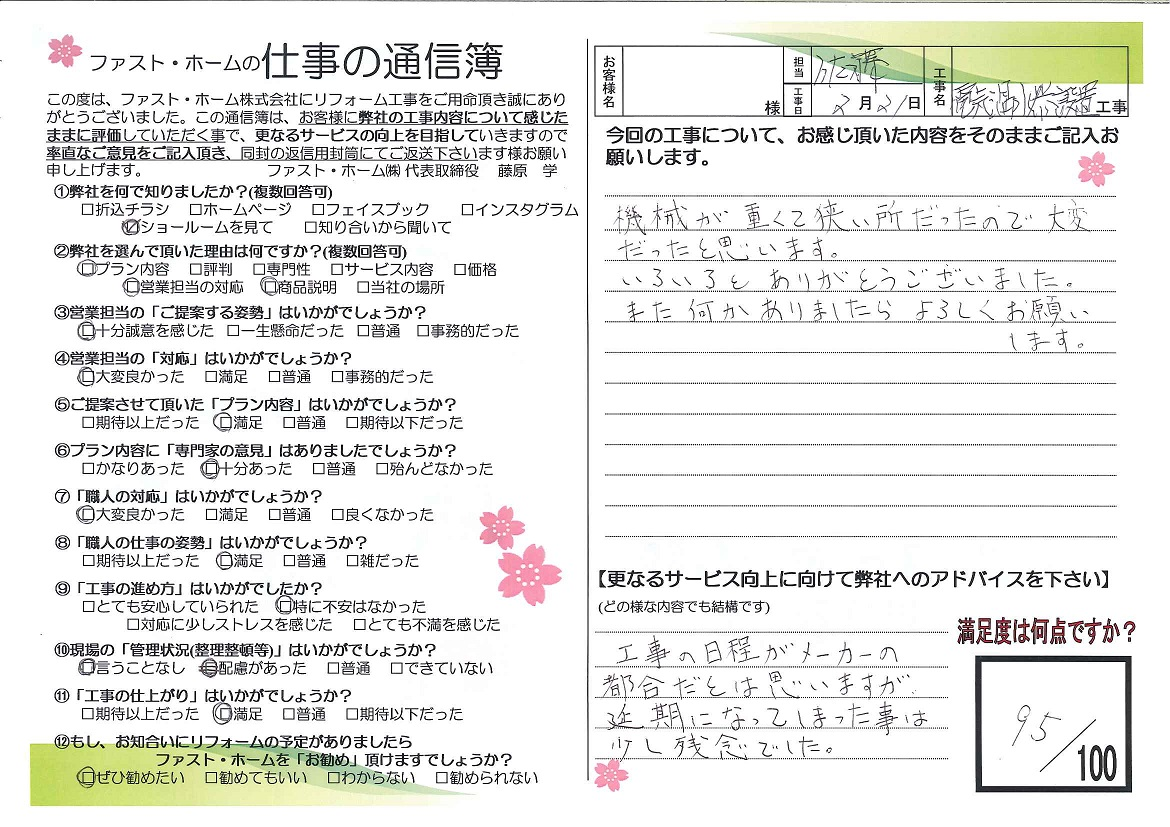 ファスト・ホームの仕事の通信簿
この度は、ファスト・ホーム株式会社にリフォーム工事をご用命頂き誠にあり
がとうございました。この通信簿は、お客様に弊社の工事内容について感じた
ままに評価していただく事で、更なるサービスの向上を目指していきますので
率直なご意見をご記入頂き、同封の返信用封筒にてご返送下さいます様お願い
申し上げます。 ファスト・ホーム㈱ 代表取締役 藤原 学
①弊社を何で知りましたか？(複数回答可)
□折込チラシ □ホームページ □フェイスブック □インスタグラム
☑ショールームを見て □知り合いから聞いて
②弊社を選んで頂いた理由は何ですか？(複数回答可)
□プラン内容 □評判 □専門性 □サービス内容 □価格
□営業担当の対応 □商品説明 □当社の場所
③営業担当の「ご提案する姿勢」はいかがでしょうか？
□十分誠意を感じた □一生懸命だった □普通 □事務的だった
④営業担当の「対応」はいかがでしょうか？
□大変良かった □満足 □普通 □事務的だった
⑤ご提案させて頂いた「プラン内容」はいかがでしょうか？
□期待以上だった □満足 □普通 □期待以下だった
⑥プラン内容に「専門家の意見」はありましたでしょうか？
□かなりあった □十分あった □普通 □殆んどなかった
⑦「職人の対応」はいかがでしょうか？
□大変良かった □満足 □普通 □良くなかった
⑧「職人の仕事の姿勢」はいかがでしょうか？
□期待以上だった □満足 □普通 □雑だった
⑨「工事の進め方」はいかがでしたか？
□とても安心していられた □特に不安はなかった
□対応に少しストレスを感じた □とても不満を感じた
⑩現場の「管理状況(整理整頓等)」はいかがでしょうか？
□言うことなし □配慮があった □普通 □できていない
⑪「工事の仕上がり」はいかがでしょうか？
□期待以上だった □満足 □普通 □期待以下だった
⑫もし、お知合いにリフォームの予定がありましたら
ファスト・ホームを「お勧め」頂けますでしょうか？
□ぜひ勧めたい □勧めてもいい □わからない □勧められない
お客様名 様 担当 工事名 工事
工事日 2月21日
今回の工事について、お感じ頂いた内容をそのままご記入お
願いします。
機械が重くて狭い所だったので大変
だったと思います。
いろいろとありがとうございました。
また何かありましたらよろしくお願い
します。
【更なるサービス向上に向けて弊社へのアドバイスを下さい】
(どの様な内容でも結構です)
工事の日程がメーカーの
都合だとは思いますが、
延期になってしまった事は
少し残念でした。
満足度は何点ですか？
95/100